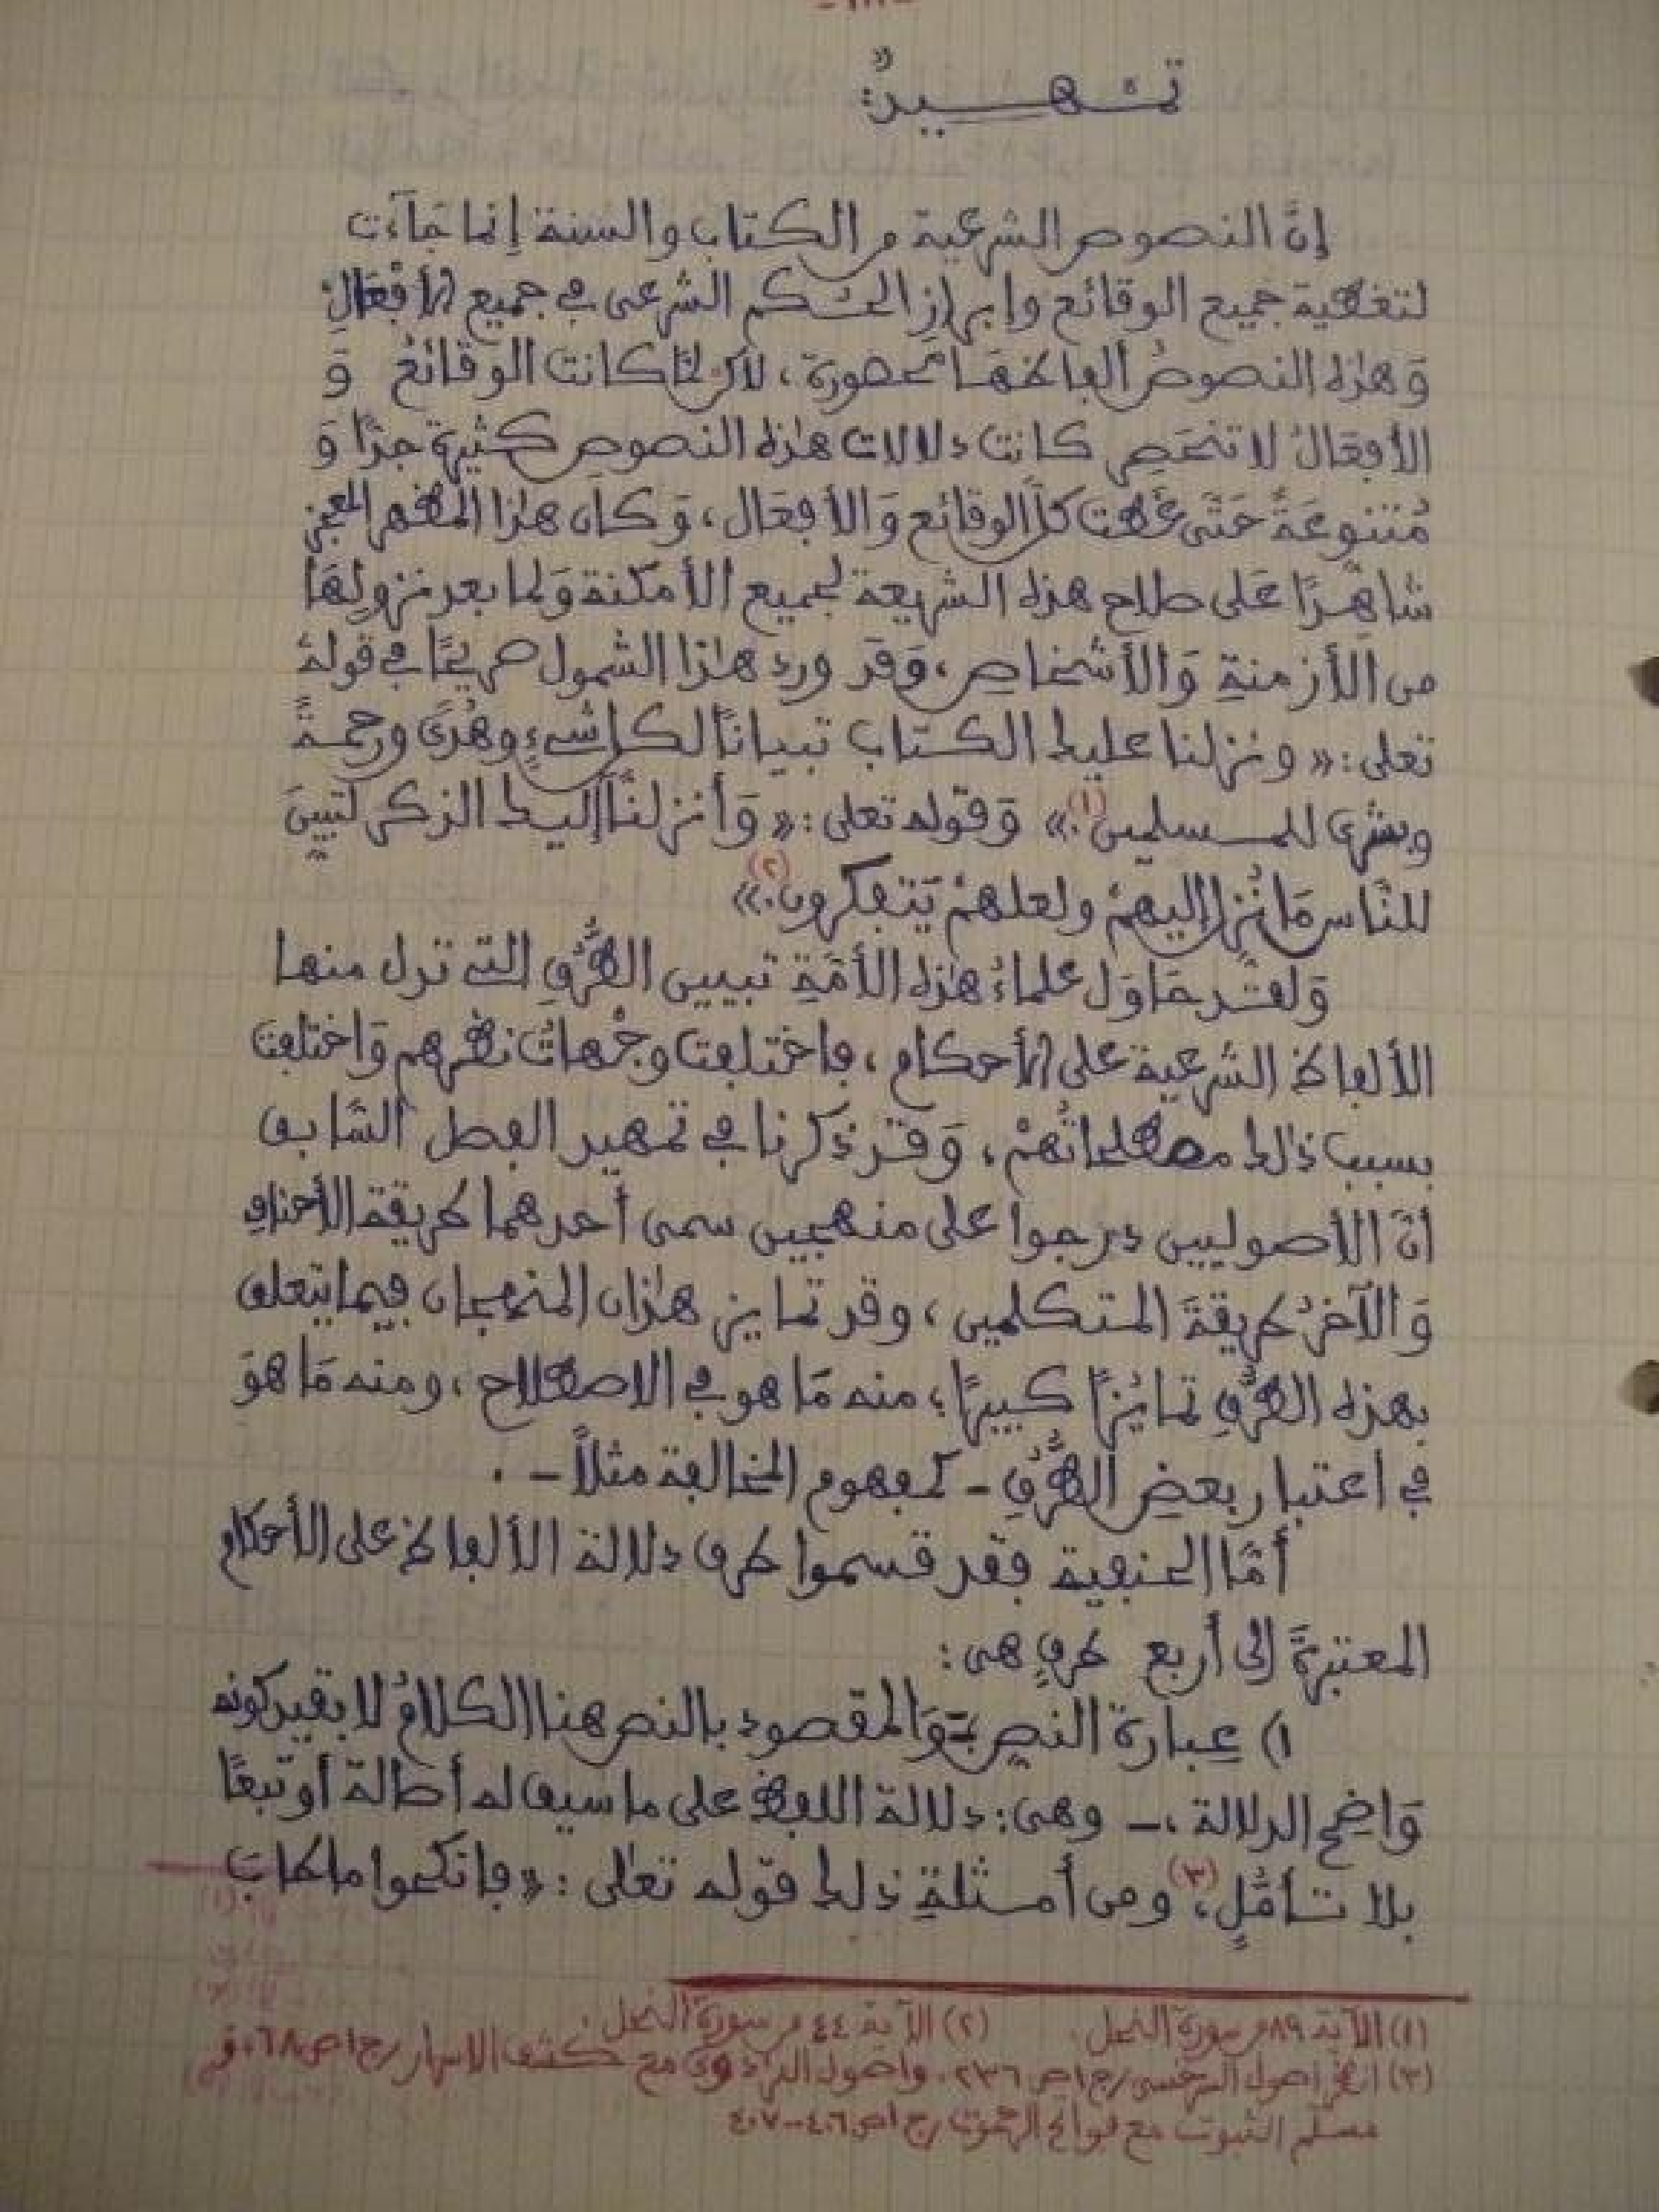 تمهيدٌ:
إنَّ النصوص الشرعية من الكتاب والسنة إنما جَآءَت
لتغطية جميع الوقائع وإبراز الحكم الشرعي في جميع الأفعَالِ
وَهذه النصوصُ ألفاظهَا محصورة، لاكن لمَّا كانت الوَقائعُ وَ
الأفعَالُ لا تنحَصِر كانت دلالات هٰذه النصوصِ كثيرة جدًّا وَ
مُتنوعَةً حَتَّى غَطت كلَّ الوقائع وَالأفعَال، وَكان هٰذا المظهر المعجز
شاهدًا عَلى صلاح هذه الشريعة لجميع الأمكنة وَلما بعد نزولِهَا
من الأزمنةِ وَالأشخاصِ، وَقد ورد هٰذا الشمول صريحًا في قوله
تعلى: «ونزلنا عليك الكتاب تبيانًا لكل شيءٍ وهُدًى ورحمةً
وبشرى للمسلمين(١).» وَقوله تعلى: «وَأنزلنَآ إليك الذكر لتبيِّنَ
للنَّاس مَا نُزل إليهمْ ولعلهمْ يَتفكرون(٢).»
وَلقد حَاوَل علماءُ هٰذه الأمَّةِ تبيين الطُّرُقِ التي تدل منها
الألفاظ الشرعية على الأحكام، فاختلفت وجْهاتُ نظرهم وَاختلفت
بسبب ذٰلك مصطلحاتُهمْ، وَقد ذكرنا في تمهيد الفصل السَّابق
أنَّ الأصوليين درجوا على منهجين سمى أحدهما طريقة الأحنافِ
وَالآخرُ طريقةَ المتكلمين، وقد تمايز هٰذان المنهجان فيما يتعلق
بهذه الطُّرُقِ تمايُزًا كبيرًا؛ منه مَا هو في الاصطلاح، ومنه مَا هوَ
في اعتبار بعضِ الطُّرُقِ - كمفهوم المخالفة مثلاً - .
أمَّا الحنفية فقد قسموا طرق دلالة الألفاظ على الأحكام
المعتبرةَ إلى أربع طرقٍ هي:
١) عبارة النصِ - وَالمقصود بالنص هنا الكلامُ لا بقيد كونه
وَاضح الدلالة، - وهي: دلالة اللفظ على ما سيق له أصالة أو تبعًا
بلا تأمُّلٍ(٣)، ومن أمثلةِ ذلك قوله تعٰلى: «فانكحوا ما طاب
(١) الآية ٨٩ من سورة النحل. (٢) الآية ٤٤ من سورة النحل.
(٣) انظر أصول السرخسي/ج١ص٢٣٦. وأصول البزدوي مع كشف الأسرار/ج١ص٦٨، و
مسلم الثبوت مع فواتح الرحموت/ج١ص٤٠٦-٤٠٧